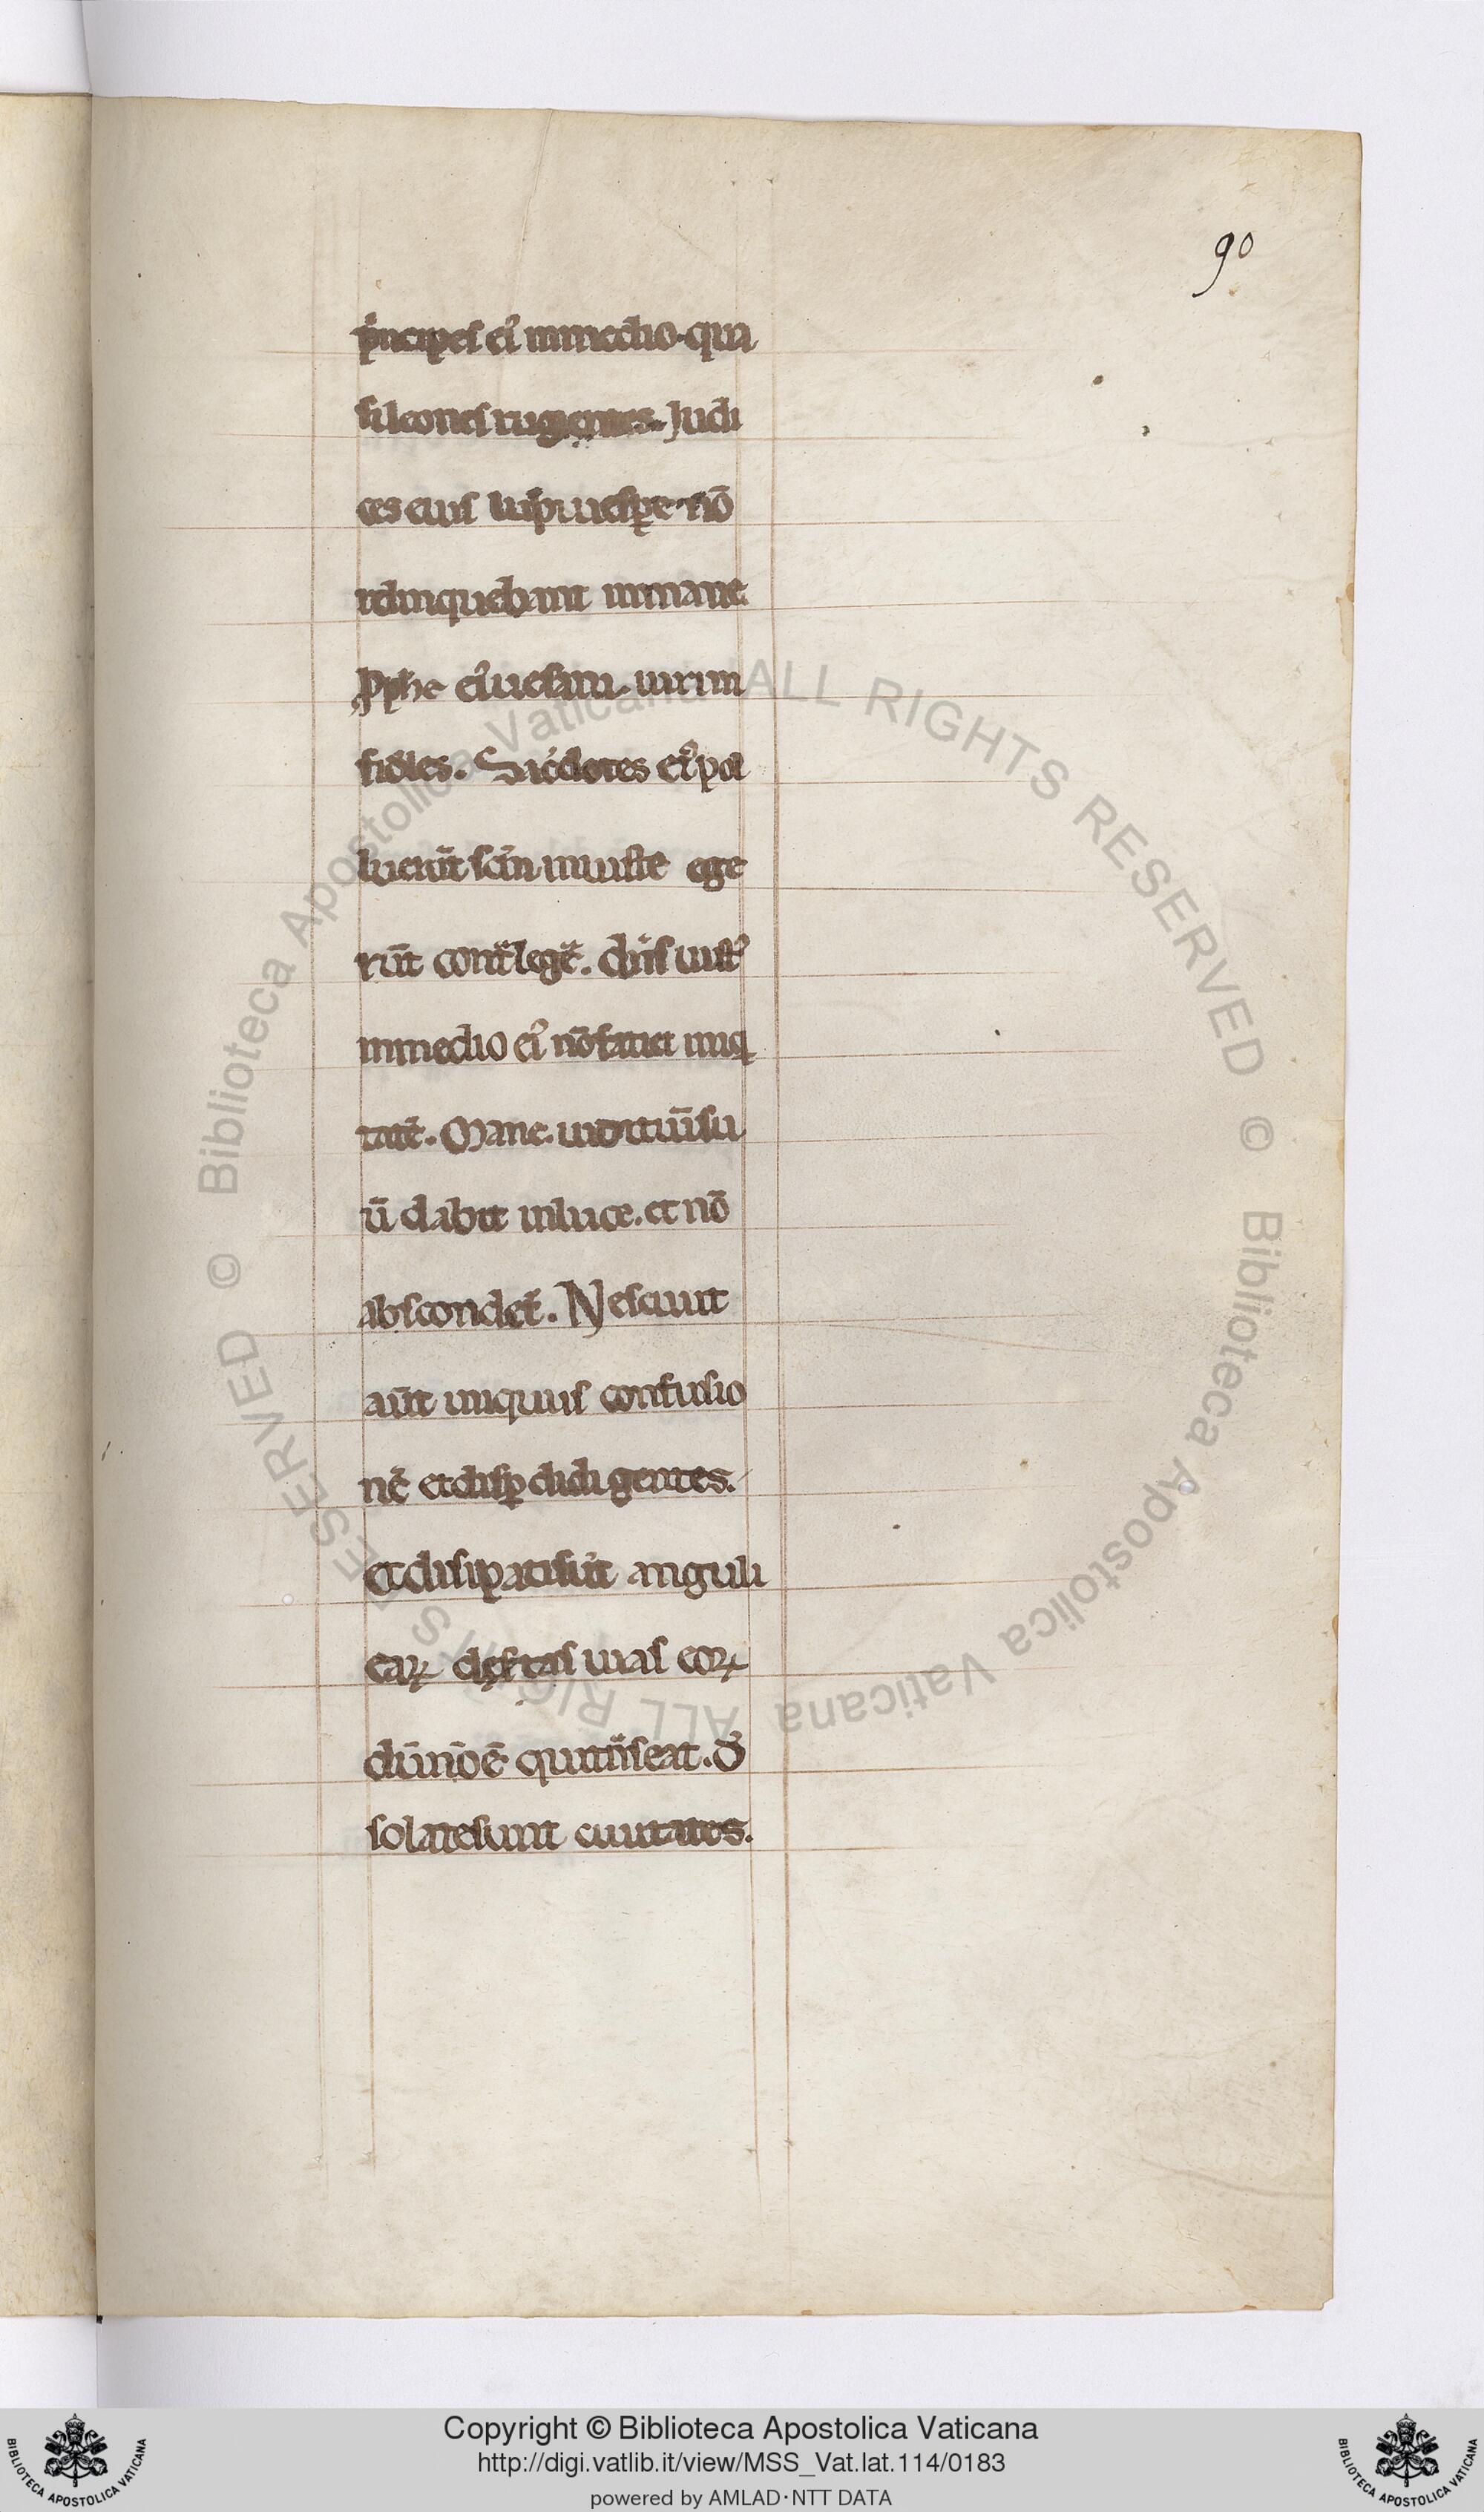 90
p̾ncipes ei᷒ inmedio. qua
si leones rugientes. Judi
ces eius lupi uespe. nō
relinquebant inmane.
Pphe ei᷒ uesani. uiri in
fideles. Sac̾dotes ei᷒ pol
luerūt scm̄ iniuste ege
rūt cont̾ legē. dn̄s iust᷒
inmedio ei᷒ nō faciet iniq
tatē. Mane. mane iudiciū su
ū dabit inluce. et nō
abscondet̾. Nesciuit
aūt iniquus confusio
nē et disꝑdidi gentes.
et disipati sūt anguli
eaꝝ desertas uias eoꝝ
dū nō ē qui transeat. de
solate sunt ciuitates.
Biblioteca Apostolica Vaticana ALL RIGHTS RESERVED ©
Biblioteca Apostolica Vaticana ALL RIGHTS RESERVED ©
Copyright © Biblioteca Apostolica Vaticana
http://digi.vatlib.it/view/MSS_Vat.lat.114/0183
powered by AMLAD·NTT DATA
BIBLIOTECA APOSTOLICA VATICANA
BIBLIOTECA APOSTOLICA VATICANA